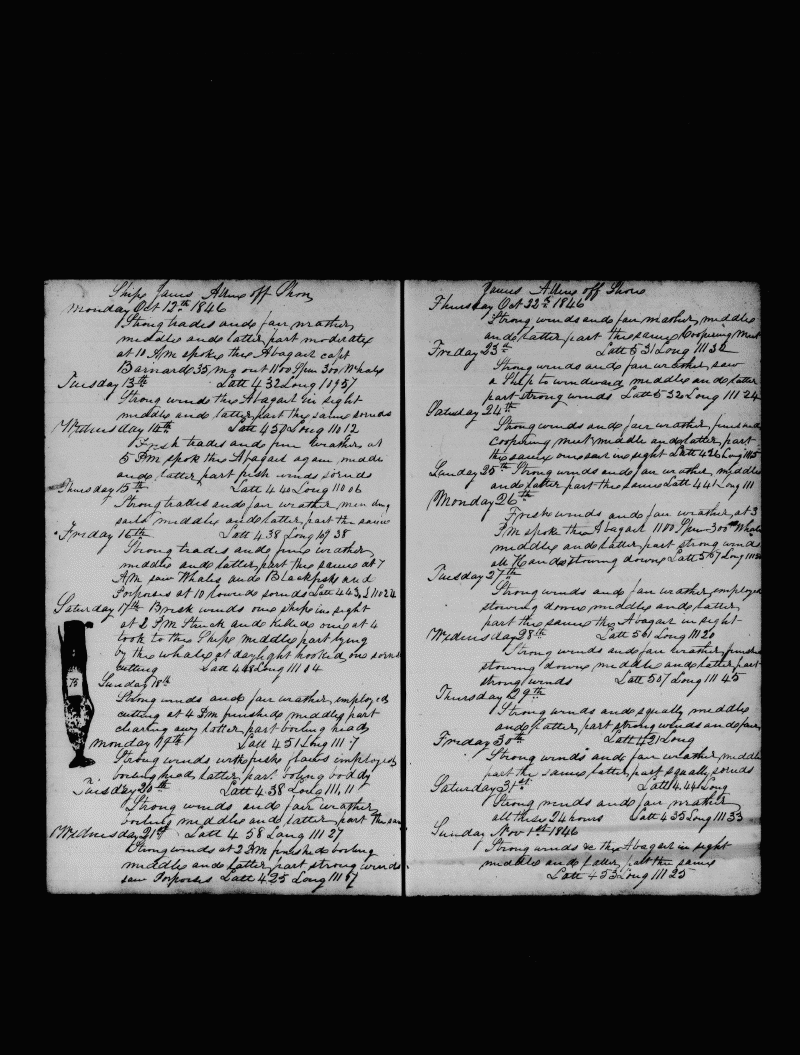 Ship James Allen off Shore
Monday Oct 12th 1846
Strong trades and fair weather
middle and latter part moderate
at 10 AM spoke the Abagail capt
Barnard 35 m out 1100 Spm 300 Whale
Tuesday 13th Latt 4 32 Long 109 57
Strong winds the Abagail in sight
middle and latter part the same
Wednesday 14th Latt 4 50 Long 110 12
Fresh trades and fine weather at
5 PM spok the Abagail again middle
and latter part fresh winds
Thursday 15th Latt 4 40 Long 110 06
Strong trades and fair weather mending
sails middle and latter part the same
Friday 16th Latt 4 38 Long 109 38
Strong trades and fine weather
middle and latter part the same at 7
AM saw Whales and Blackfish and
Porposes at 10 lowerd Latt 4 43 L 110 24
Saturday 17th Brisk winds one ship in sight
at 2 PM Struck and killed one at 4
took to the Ship middle part lying
by the whale at daylight hooked on
cutting Latt 4 48 Long 111 04
75
Sunday 18th
Strong winds and fair weather employed
cutting at 4 PM finished middle part
clearing away latter part boiling heads
Monday 19th Latt 4 51 Long 111 7
Strong winds with fresh employed
boiling head latter part boiling boddy
Tuesday 20th Latt 4 38 Long 111,11
Strong winds and fair weather
boiling middle and latter part the same
Wednesday 21st Latt 4 58 Long 111 27
Strong winds at 2 PM finished boiling
middle and latter part strong winds
saw Porposes Latt 4 25 Long 111 57
James Allen off Shore
Thursday Oct 22d 1846
Strong winds and fair weather middle
and latter part the same Coopering Meat
Friday 23d Latt 5 31 Long 111 32
Strong winds and fair weather saw
a Ship to windward middle and latter
part strong winds Latt 5 32 Long 111 24
Saturday 24th
Strong winds and fair weather
coopering meat middle and latter part
the same one sail in sight Latt 4 26 Long
Sunday 25th Strong winds and fair weather middle
and latter part the same Latt 4 41 Long 111
Monday 26th
Fresh winds and fair weather at 3
PM spoke the Abagail 1100 Spm 300 Whale
middle and latter part strong winds
all Hands stowing down Latt 5 07 Long 111
Tuesday 27th
Strong winds and fair weather employed
stowing down middle and latter
part the same the Abagail in sight
Wednesday 28th Latt 5 01 Long 111 20
Strong winds and fair weather finished
stowing down middle and latter part
strong winds Latt 5 07 Long 111 45
Thursday 29th
Strong winds and squally middle
and latter part strong winds and fair
Friday 30th Latt 4 21 Long
Strong winds and fair weather middle
part the same latter part squally
Saturday 31st Latt 4 44 Long
Strong winds and fair weather
all these 24 hours Latt 4 35 Long 111 33
Sunday Nov 1st 1846
Strong winds & the Abagail in sight
middle and latter part the same
Latt 4 53 Long 111 25